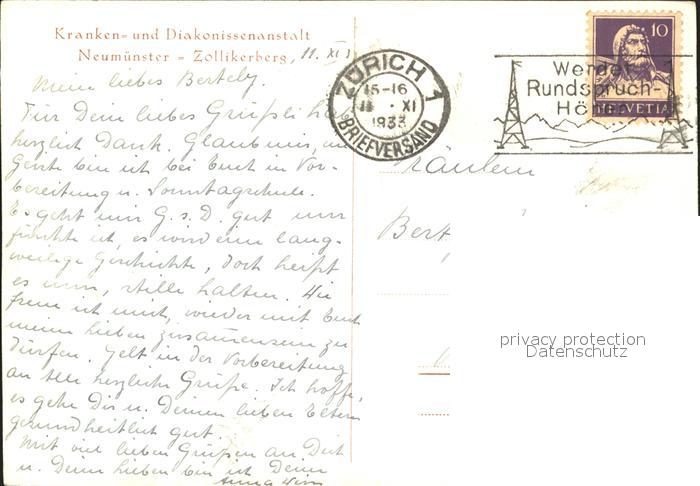 Kranken- und Diakonissenanstalt
Neumünster - Zollikerberg, 11. XI.
Mein liebes Bertely.
Für Dein liebes Grüßli
herzlich Dank. Glaub mir, im
Geiste bin ich bei Euch in Vor-
bereitung u. Sonntagschule.
Es geht mir G. s. D. gut nur
fürchte ich, es wird eine lang-
weilige Geschichte, doch heißt
es nun, stille halten. Wie
freu ich mich, wieder mit Euch
meinen lieben zusammensein zu
dürfen. Gelt in der Vorbereitung
an alle herzliche Grüße. Ich hoffe,
es gehe Dir u. Deinen lieben Eltern
gesundheitlich gut.
Mit viel lieben Grüßen an Dich
u. Deine lieben bin ich Deine
Anna
ZÜRICH 1
15-16
11. XI
1933
BRIEFVERSAND
Werdet
Rundspruch-
Hörer
10
HELVETIA
Fräulein
Bert
privacy protection
Datenschutz